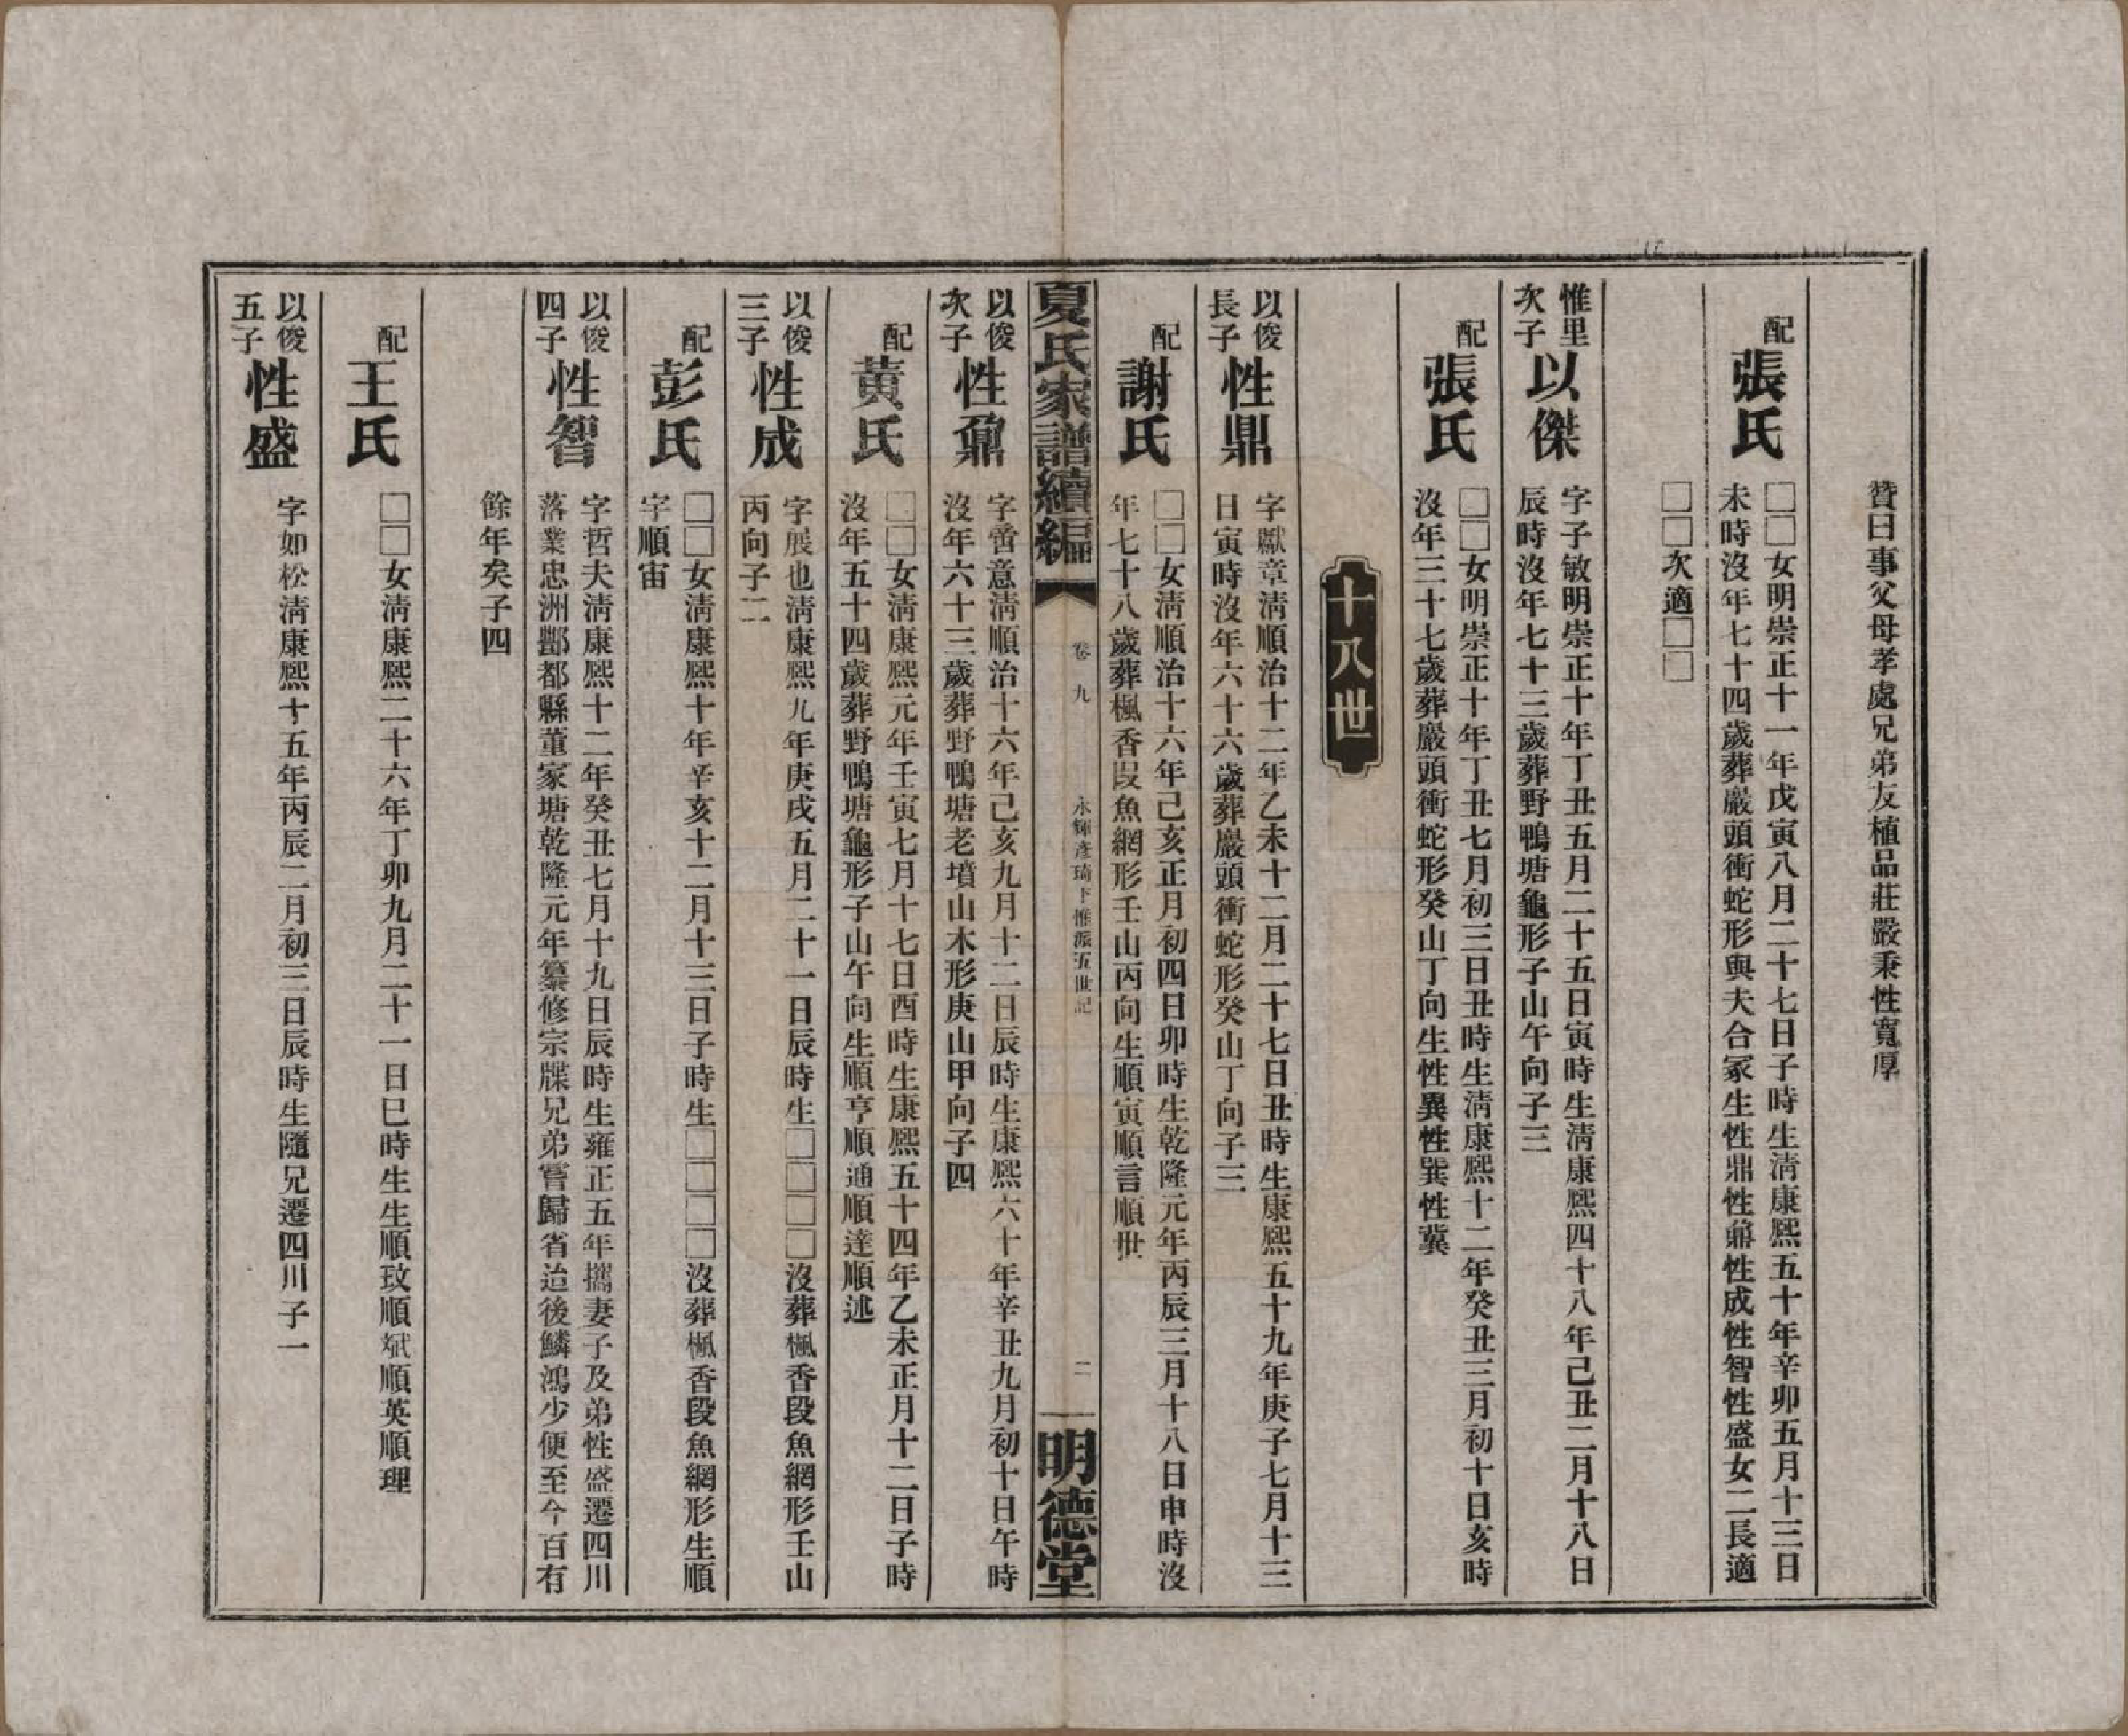 贊曰事父母孝處兄弟友植品莊嚴秉性寬厚
配張氏
□□女明崇正十一年戊寅八月二十七日子時生淸康熙五十年辛卯五月十三日
未時沒年七十四歲葬巖頭衝蛇形與夫合冢生性鼎性鼐性成性智性盛女二長適
□□次適□□
惟里
次子
以傑
字子敏明崇正十年丁丑五月二十五日寅時生淸康熙四十八年己丑二月十八日
辰時沒年七十三歲葬野鴨塘龜形子山午向子三
配張氏
□□女明崇正十年丁丑七月初三日丑時生淸康熙十二年癸丑三月初十日亥時
沒年三十七歲葬巖頭衝蛇形癸山丁向生性異性巽性冀
十八世
以俊
長子
性鼎
字獻章淸順治十二年乙未十二月二十七日丑時生康熙五十九年庚子七月十三
日寅時沒年六十六歲葬巖頭衝蛇形癸山丁向子三
配謝氏
□□女淸順治十六年己亥正月初四日卯時生乾隆元年丙辰三月十八日申時沒
年七十八歲葬楓香段魚網形壬山丙向生順寅順言順世
夏氏家譜續編
卷九
永輝彥琦卞惟派五世記
二
明德堂
以俊
次子
性鼐
字嘗意淸順治十六年己亥九月十二日辰時生康熙六十年辛丑九月初十日午時
沒年六十三歲葬野鴨塘老墳山木形庚山甲向子四
配黃氏
□□女淸康熙元年壬寅七月十七日酉時生康熙五十四年乙未正月十二日子時
沒年五十四歲葬野鴨塘龜形子山午向生順亨順通順達順述
以俊
三子
性成
字展也淸康熙九年庚戌五月二十一日辰時生□□□□沒葬楓香段魚網形壬山
丙向子二
配彭氏
□□女淸康熙十年辛亥十二月十三日子時生□□□□沒葬楓香段魚網形生順
字順宙
以俊
四子
性智
字哲夫淸康熙十二年癸丑七月十九日辰時生雍正五年攜妻子及弟性盛遷四川
落業忠洲酆都縣董家塘乾隆元年纂修宗牒兄弟嘗歸省迨後鱗鴻少便至今百有
餘年矣子四
配王氏
□□女淸康熙二十六年丁卯九月二十一日巳時生生順玟順斌順英順理
以俊
五子
性盛
字如松淸康熙十五年丙辰二月初三日辰時生隨兄遷四川子一